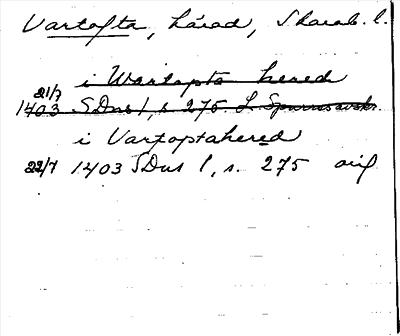 Vartofta, härad, Skarab. l.
i Wartapta hered
21/7
1403 SDns 1, s 275. L Sparresävskr.
i Varþoptahered
22/7 1403 SDns 1, s. 275 orig